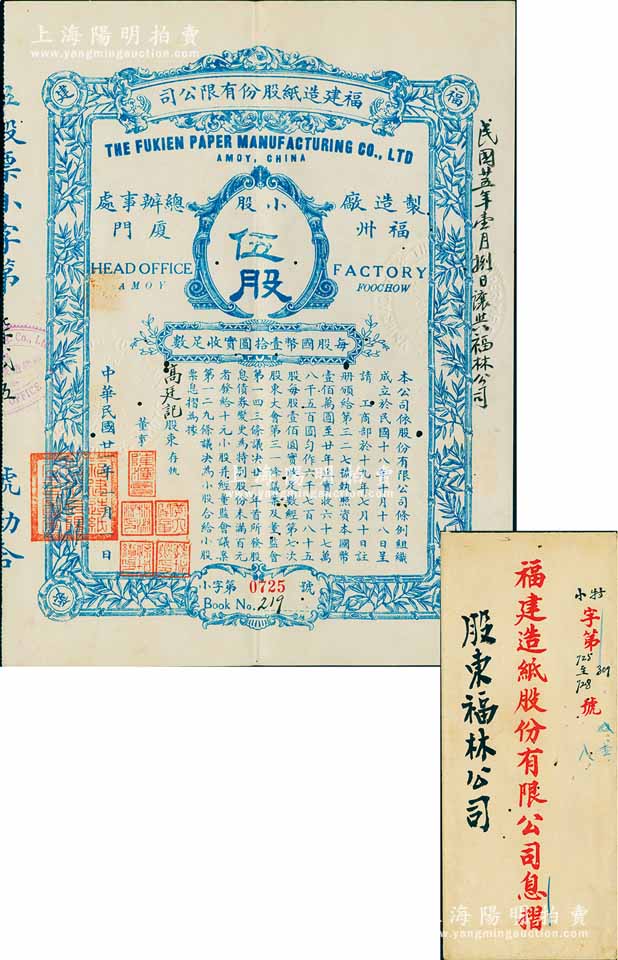 上海陽明拍賣
www.yangmingauction.com
福
建
福建造紙股份有限公司
THE FUKIEN PAPER MANUFACTURING CO., LTD
AMOY, CHINA
製造廠
福州
FACTORY
FOOCHOW
小股
伍股
總辦事處
廈門
HEAD OFFICE
AMOY
每股國幣壹拾圓實收足數
本公司依股份有限公司條例組織
成立於民國十八年八月十八日呈
請工商部於十九年七月十日註
冊頒給第三七一號執照資本國幣
壹佰萬圓至廿年實收六十七萬
八千五百圓勻作六千七百八十五
股每股壹佰圓實收足數經第七次
股東大會第三一條議案及董監會
第一四三條議決廿年
首所發股
息債券變更為特別股份未滿百元
者發給十元小股死經董監會議案
第一二九條議決為小股合給小股
票息摺為據
馮廷記
股東存執
董事
中華民國廿
年
月
日
小字第 0725 號
Book No. 219
民國廿五年壹月捌日讓與福林公司
股票小字第
號勘合
福建造紙股份有限公司息摺
股東福林公司
特
小
字第
號
309
725
至
728
上海陽明拍賣
www.yangmingauction.com